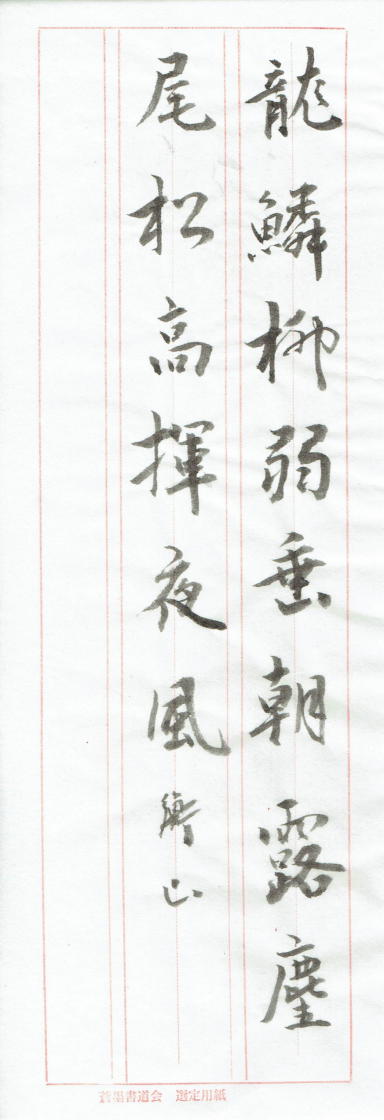 龍鱗柳弱垂朝露麈
尾松高揮夜風 衡山
蒼墨書道会 選定用紙